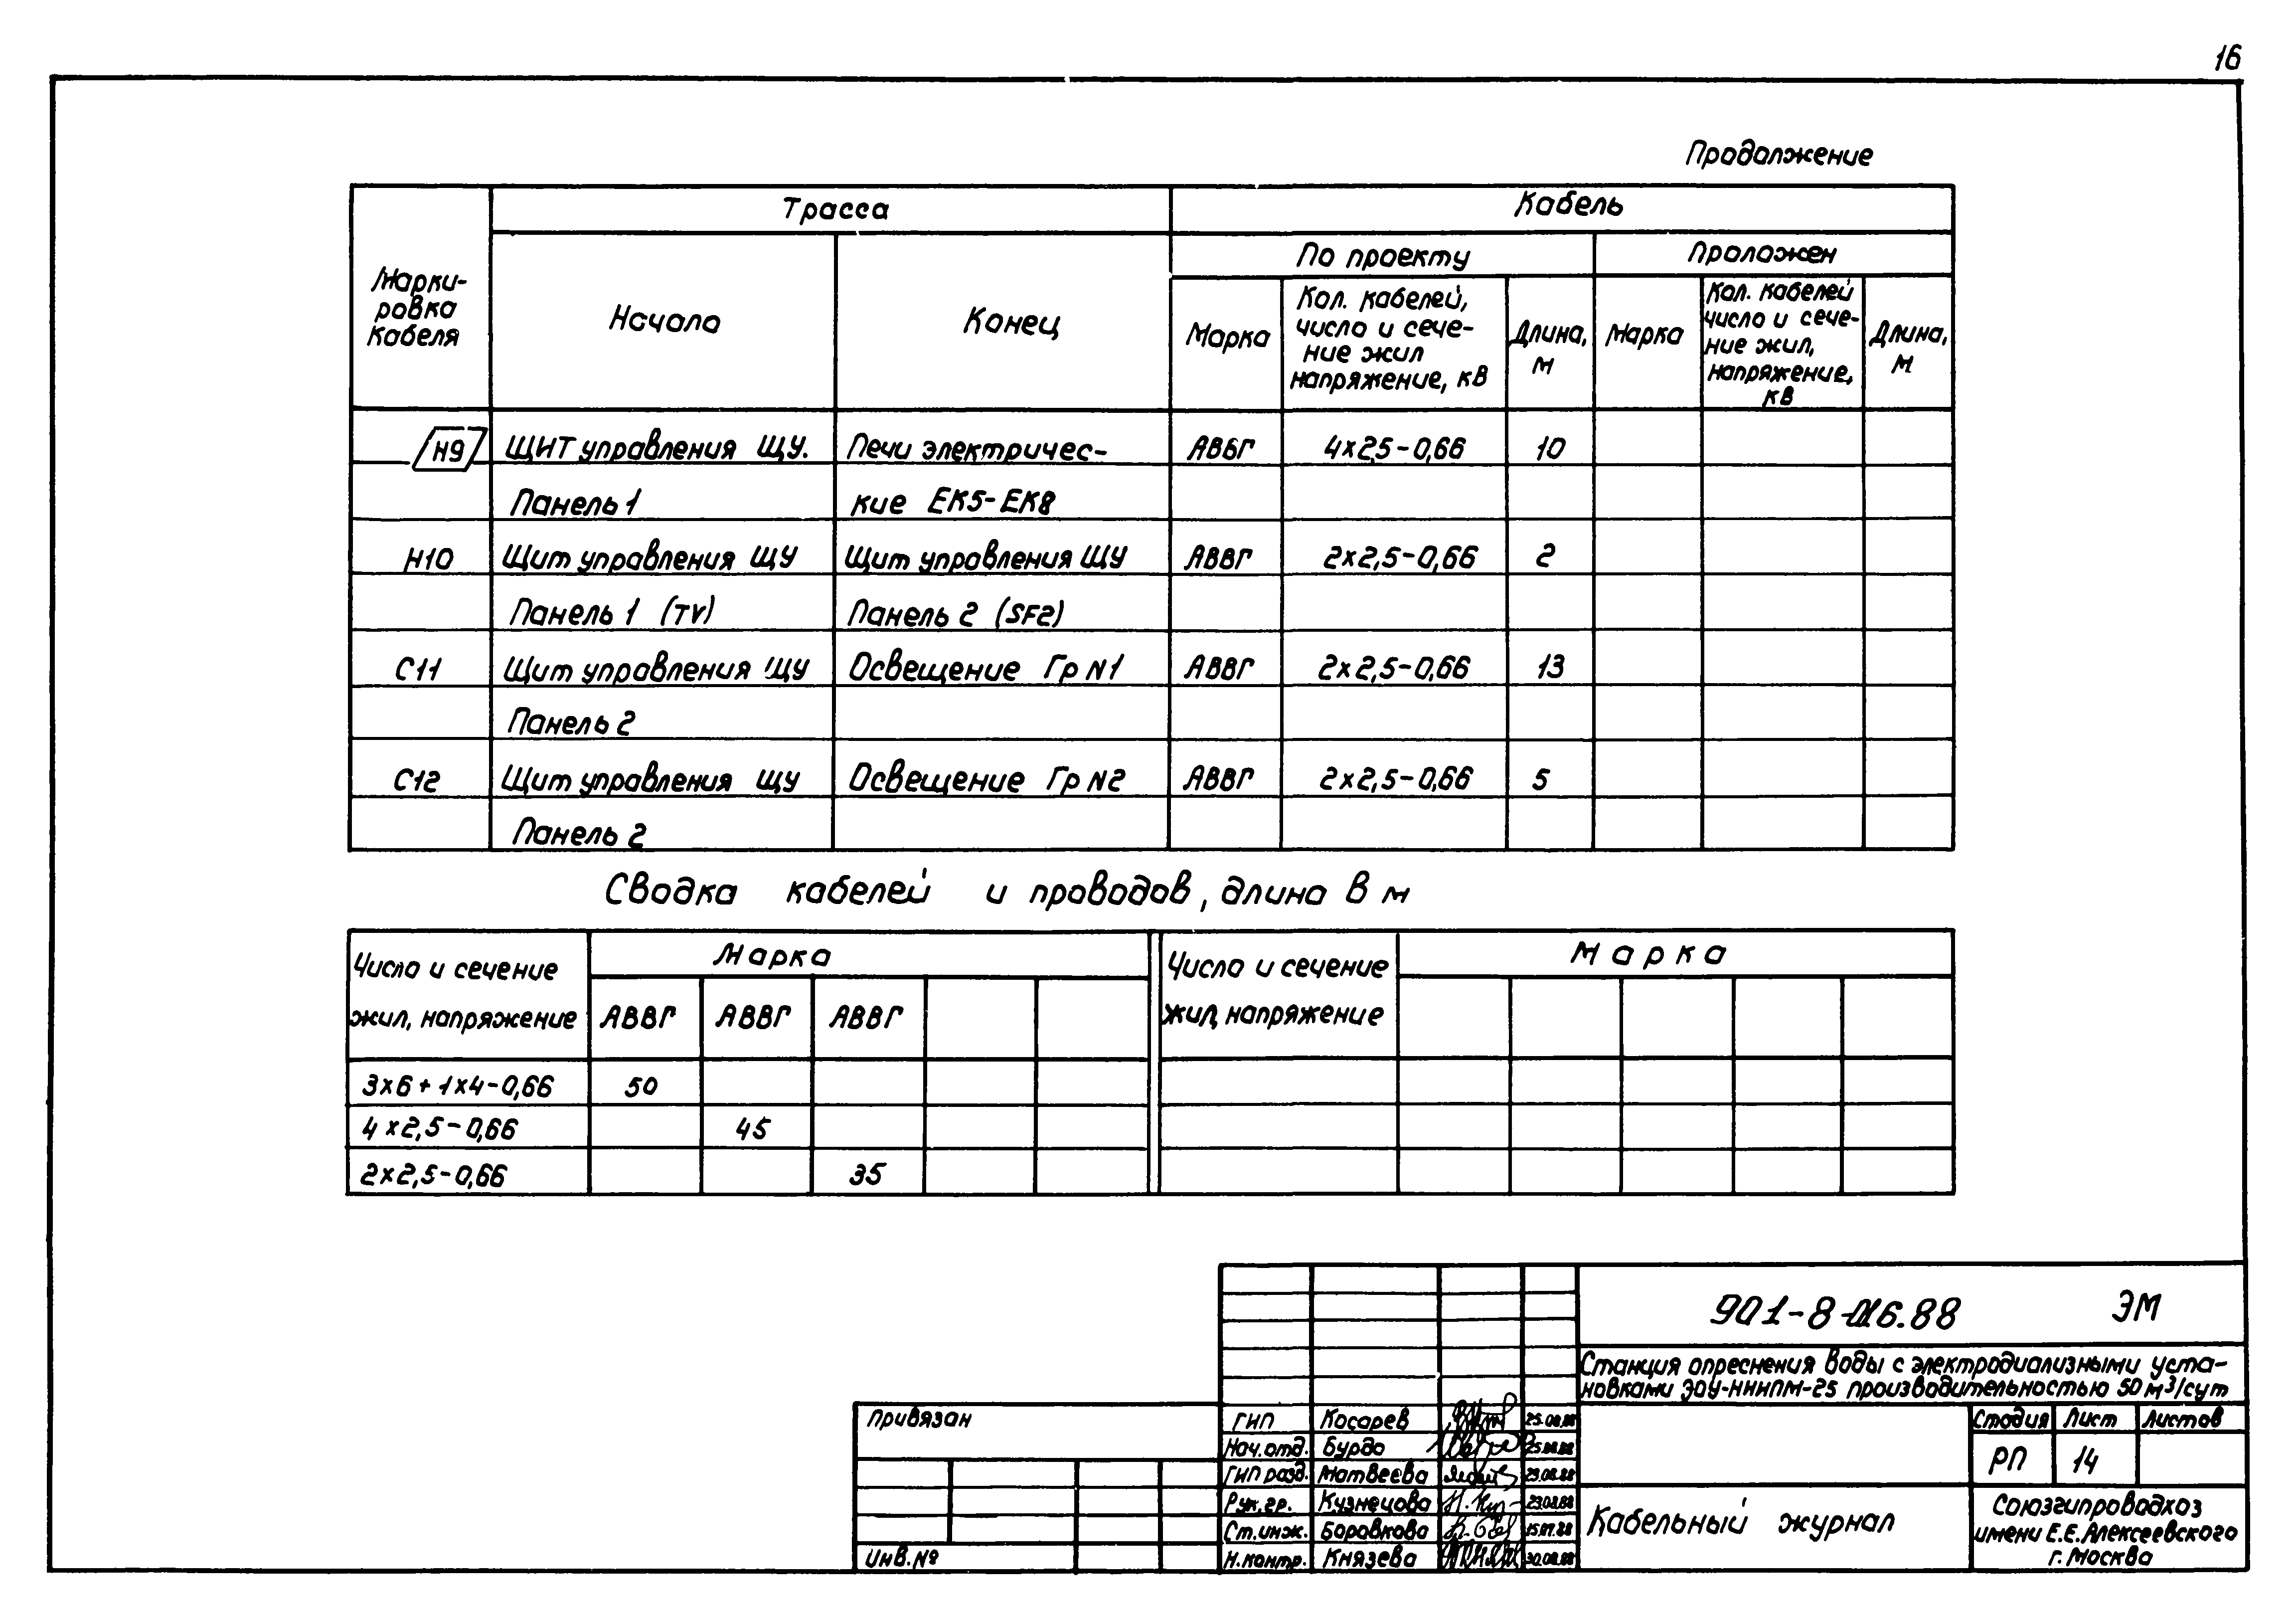 16
Продолжение
Марки-
ровка
кабеля
Трасса
Кабель
Начало
Конец
По проекту
Проложен
Марка
Кол. кабелей,
число и сече-
ние жил
напряжение, кВ
Длина,
м
Марка
Кол. кабелей
число и сече-
ние жил,
напряжение,
кВ
Длина,
м
Н9 Щит управления ЩУ. Печи электричес- АВВГ 4х2,5-0,66 10
Панель 1 кие ЕК5-ЕК8
Н10 Щит управления ЩУ Щит управления ЩУ АВВГ 2х2,5-0,66 2
Панель 1 (TV) Панель 2 (SF2)
С11 Щит управления ЩУ Освещение Гр N1 АВВГ 2х2,5-0,66 13
Панель 2
С12 Щит управления ЩУ Освещение Гр N2 АВВГ 2х2,5-0,66 5
Панель 2
Сводка кабелей и проводов, длина в м
Число и сечение
жил, напряжение
Марка
АВВГ АВВГ АВВГ
Число и сечение
жил, напряжение
Марка
3х6+1х4-0,66 50
4х2,5-0,66 45
2х2,5-0,66 35
901-8-016.88 ЭМ
Станция опреснения воды с электродиализными уста-
новками ЭОУ-НИИПМ-25 производительностью 50 м³/сут
Привязан
Инв.№
ГИП Косарев 25.08.88
Нач.отд. Бурдо 25.08.88
ГИП разд. Матвеева 23.08.88
Рук.гр. Кузнецова 23.08.88
Ст.инж. Боровкова 15.07.88
Н.контр. Князева 30.08.88
Стадия Лист Листов
РП 14
Кабельный журнал
Союзгипроводхоз
имени Е.Е.Алексеевского
г. Москва